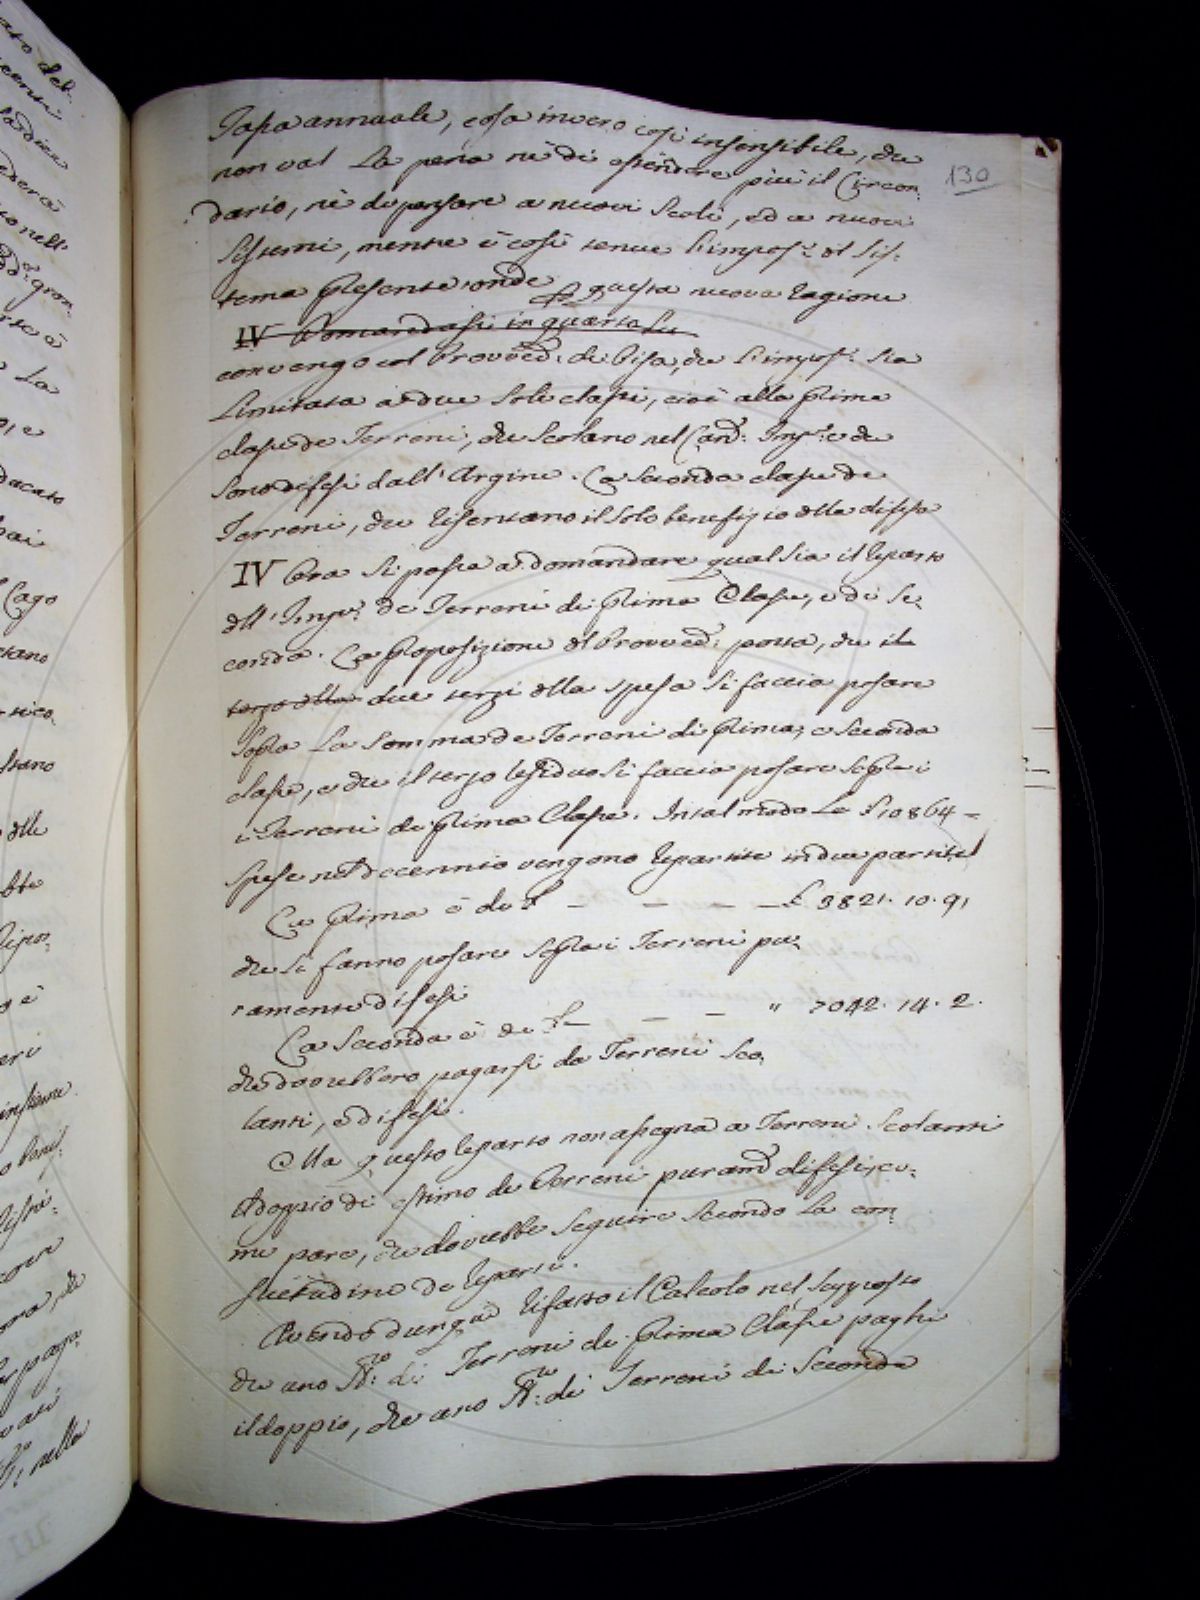 130
Tassa annuale, cosa invero così insensibile, che
non val la pena nè di estendere più il Circon
dario, nè di pensare a nuovi Scoli, ed a nuovi
Sistemi, mentre è così tenue l'impos.ne del Sis=
tema presente onde p questa nuova ragione
IV Domandasi in quarto lu
convengo col Provved.: di Pisa, che l'impos.ne sia
Limitata a due sole classi, cioè alla prima
classe de Terreni, che Scolano nel Can.: Imp.le e che
sono difesi dall'Argine. La seconda classe de
Terreni, che risentano il solo benefizio della difesa
IV Ora si passa a domandare qual sia il reparto
dell'Imp.ne de Terreni di prima Classe, e di se=
conda. La proposizione del Provved.: porta, che il
terzo della due terzi della spesa si faccia posare
sopra la somma de Terreni di prima, e seconda
classe, e che il terzo residuo si faccia posare sopra i
i Terreni di prima Classe. In tal modo le £ 10864 -
spese nel decennio vengono repartite in due partite
La prima è di £ - - - - £ 3821. 10. 9
che si fanno posare sopra i Terreni pu=
ramente difesi
La seconda è di £ - - - " 7042. 14. 2.
che dovrebbero pagarsi da Terreni Sco=
lanti, e difesi.
Ma questo reparto non assegna a Terreni Scolanti
il doppio di estimo de Terreni puram.te difesi, co=
me pare, che dovrebbe seguire secondo la con
suetudine de reparti.
Avendo dunq.e rifatto il Calcolo nel supposto
che uno St.ro: di Terreni di prima Classe paghi
il doppio, che uno St.ro: di Terreni di Seconda